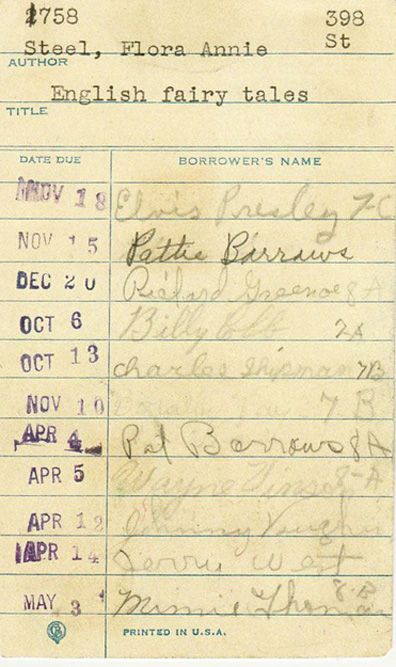 2758 398
Steel, Flora Annie St
AUTHOR
English fairy tales
TITLE
DATE DUE BORROWER'S NAME
NOV 18 Elvis Presley 7-C
NOV 15 Pattie Barrows
DEC 20 Richard Greenoe 8A
OCT 6 Billy 2A
OCT 13 Charles Shipman 7B
NOV 10 7 B
APR 4 Pat Barrows 8A
APR 5 Wayne 8-A
APR 12 Jimmy Vaughn
APR 14 Jerry West
8-B
MAY 3 Minnie Thomas
PRINTED IN U.S.A.